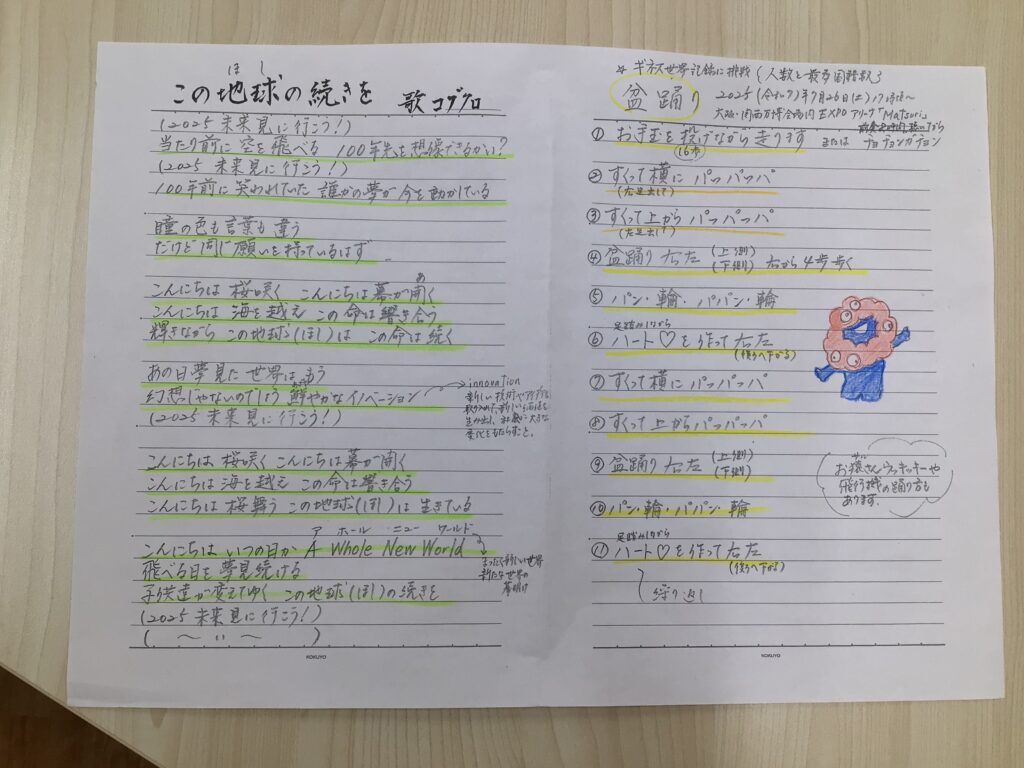 ほし
この地球の続きを 歌 コブクロ
(2025 未来見に行こう!)
当たり前に空を飛べる 100年先を想像できるかい?
(2025 未来見に行こう!)
100年前に笑われていた 誰かの夢が今を動かしている
瞳の色も言葉も違う
だけど同じ願いを持っているはず
こんにちは 桜咲く こんにちは 幕が開く
こんにちは 海を越え この命は響き合う
輝きながら この地球(ほし)は この命は続く
あの日夢見た 世界はもう
幻想じゃないのでしょう 鮮やかなイノベーション
innovation
(2025 未来見に行こう!)
こんにちは 桜咲く こんにちは 幕が開く
こんにちは 海を越え この命は響き合う
こんにちは 桜舞う この地球(ほし)は 生きている
ア ホール ニュー ワールド
こんにちは いつの日か A Whole New World
まったく新しい世界
新たな世界の
幕開け
飛べる日を夢見続ける
子供達が変えてゆく この地球(ほし)の続きを
(2025 未来見に行こう!)
( 〜 い 〜 )
KOKUYO
☆ ギネス世界記録に挑戦 (人数と最多国籍数)
盆踊り
2025(令和7)年7月26日(土)17時頃〜
大阪・関西万博会場内 EXPO アリーナ「Matsuri」
① お手玉を投げながら走ります または チョチョンガチョン
(16歩)
② すくって横に パッパッパ
(右足出して)
③ すくって上から パッパッパ
(左足出して)
④ 盆踊り 右左 (上2周り) (下2周り) 右から4歩歩く
⑤ パン・輪・パパン・輪
足踏みしながら
⑥ ハート♡を作って右左
(後ろへ下がる)
⑦ すくって横に パッパッパ
⑧ すくって上からパッパッパ
⑨ 盆踊り 右左
⑩ パン・輪・パパン・輪
足踏みしながら
⑪ ハート♡を作って右左
(後ろへ下がる)
繰り返し
お猿さんウッキッキーや
飛行機の踊り方も
あります。
KOKUYO